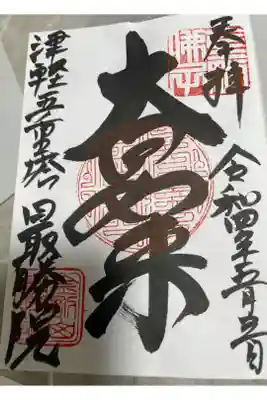 奉拝
令和四年五月三日
大日如来
津軽五重塔 最勝院